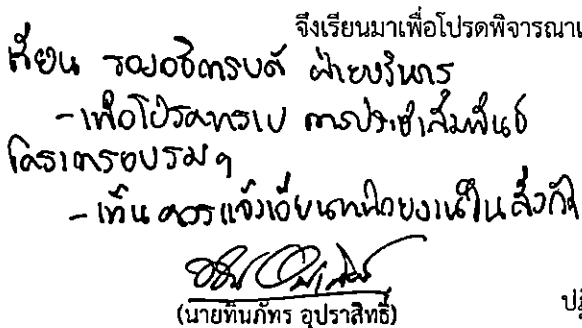 จึงเรียนมาเพื่อโปรดพิจารณา
เรียน รองอธิการบดี ฝ่ายบริหาร
- เพื่อโปรดทราบ การประชาสัมพันธ์
โครงการอบรมฯ
- เห็นควรแจ้งเวียนหน่วยงานในสังกัด
(นายทินภัทร อุปราสิทธิ์)